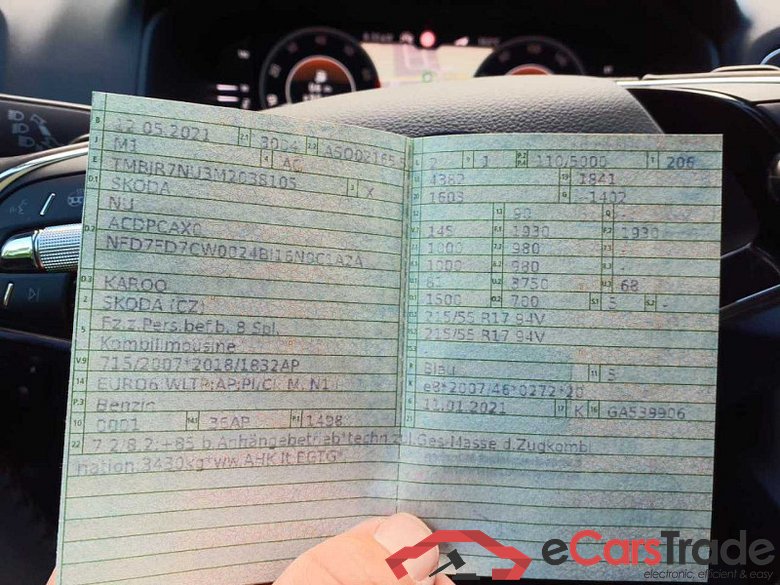 B 12.05.2021 2.1 3004 2.2 ASO02165 5
J M1 4 AC
E TMBJR7NU3M2038105 3 X
D.1 SKODA
NU
D.2 ACDPCAX0
NFD7FD7CW0024BI16N9C1A2A
D.3 KAROQ
2 SKODA (CZ)
5 Fz.z.Pers.bef.b. 8 Spl.
Kombilimousine
V.9 715/2007*2018/1832AP
14 EURO6 WLTP;AP;PI/CI; M, N1 I
P.3 Benzin
10 0001 14.1 36AP P.1 1498
22 7.2/8.2:+85 b.Anhängebetrieb*techn.zul.Ges.Masse d.Zugkombi
nation:3430kg*ww.AHK lt.EGTG*
L 2 9 1 P.2/P.4 110/5000 T 206
18 4382 19 1841
20 1603 G -1402
12 - 13 90 Q -
V.7 145 F.1 1930 F.2 1930
7.1 1000 7.2 980 7.3 -
8.1 1000 8.2 980 8.3 -
U.1 81 U.2 3750 U.3 68
O.1 1500 O.2 700 S.1 5 S.2 -
15.1 215/55 R17 94V
15.2 215/55 R17 94V
15.3 -
R Blau 11 5
K e8*2007/46*0272*20
6 11.01.2021 17 K 16 GA539906
21
eCarsTrade
electronic, efficient & easy